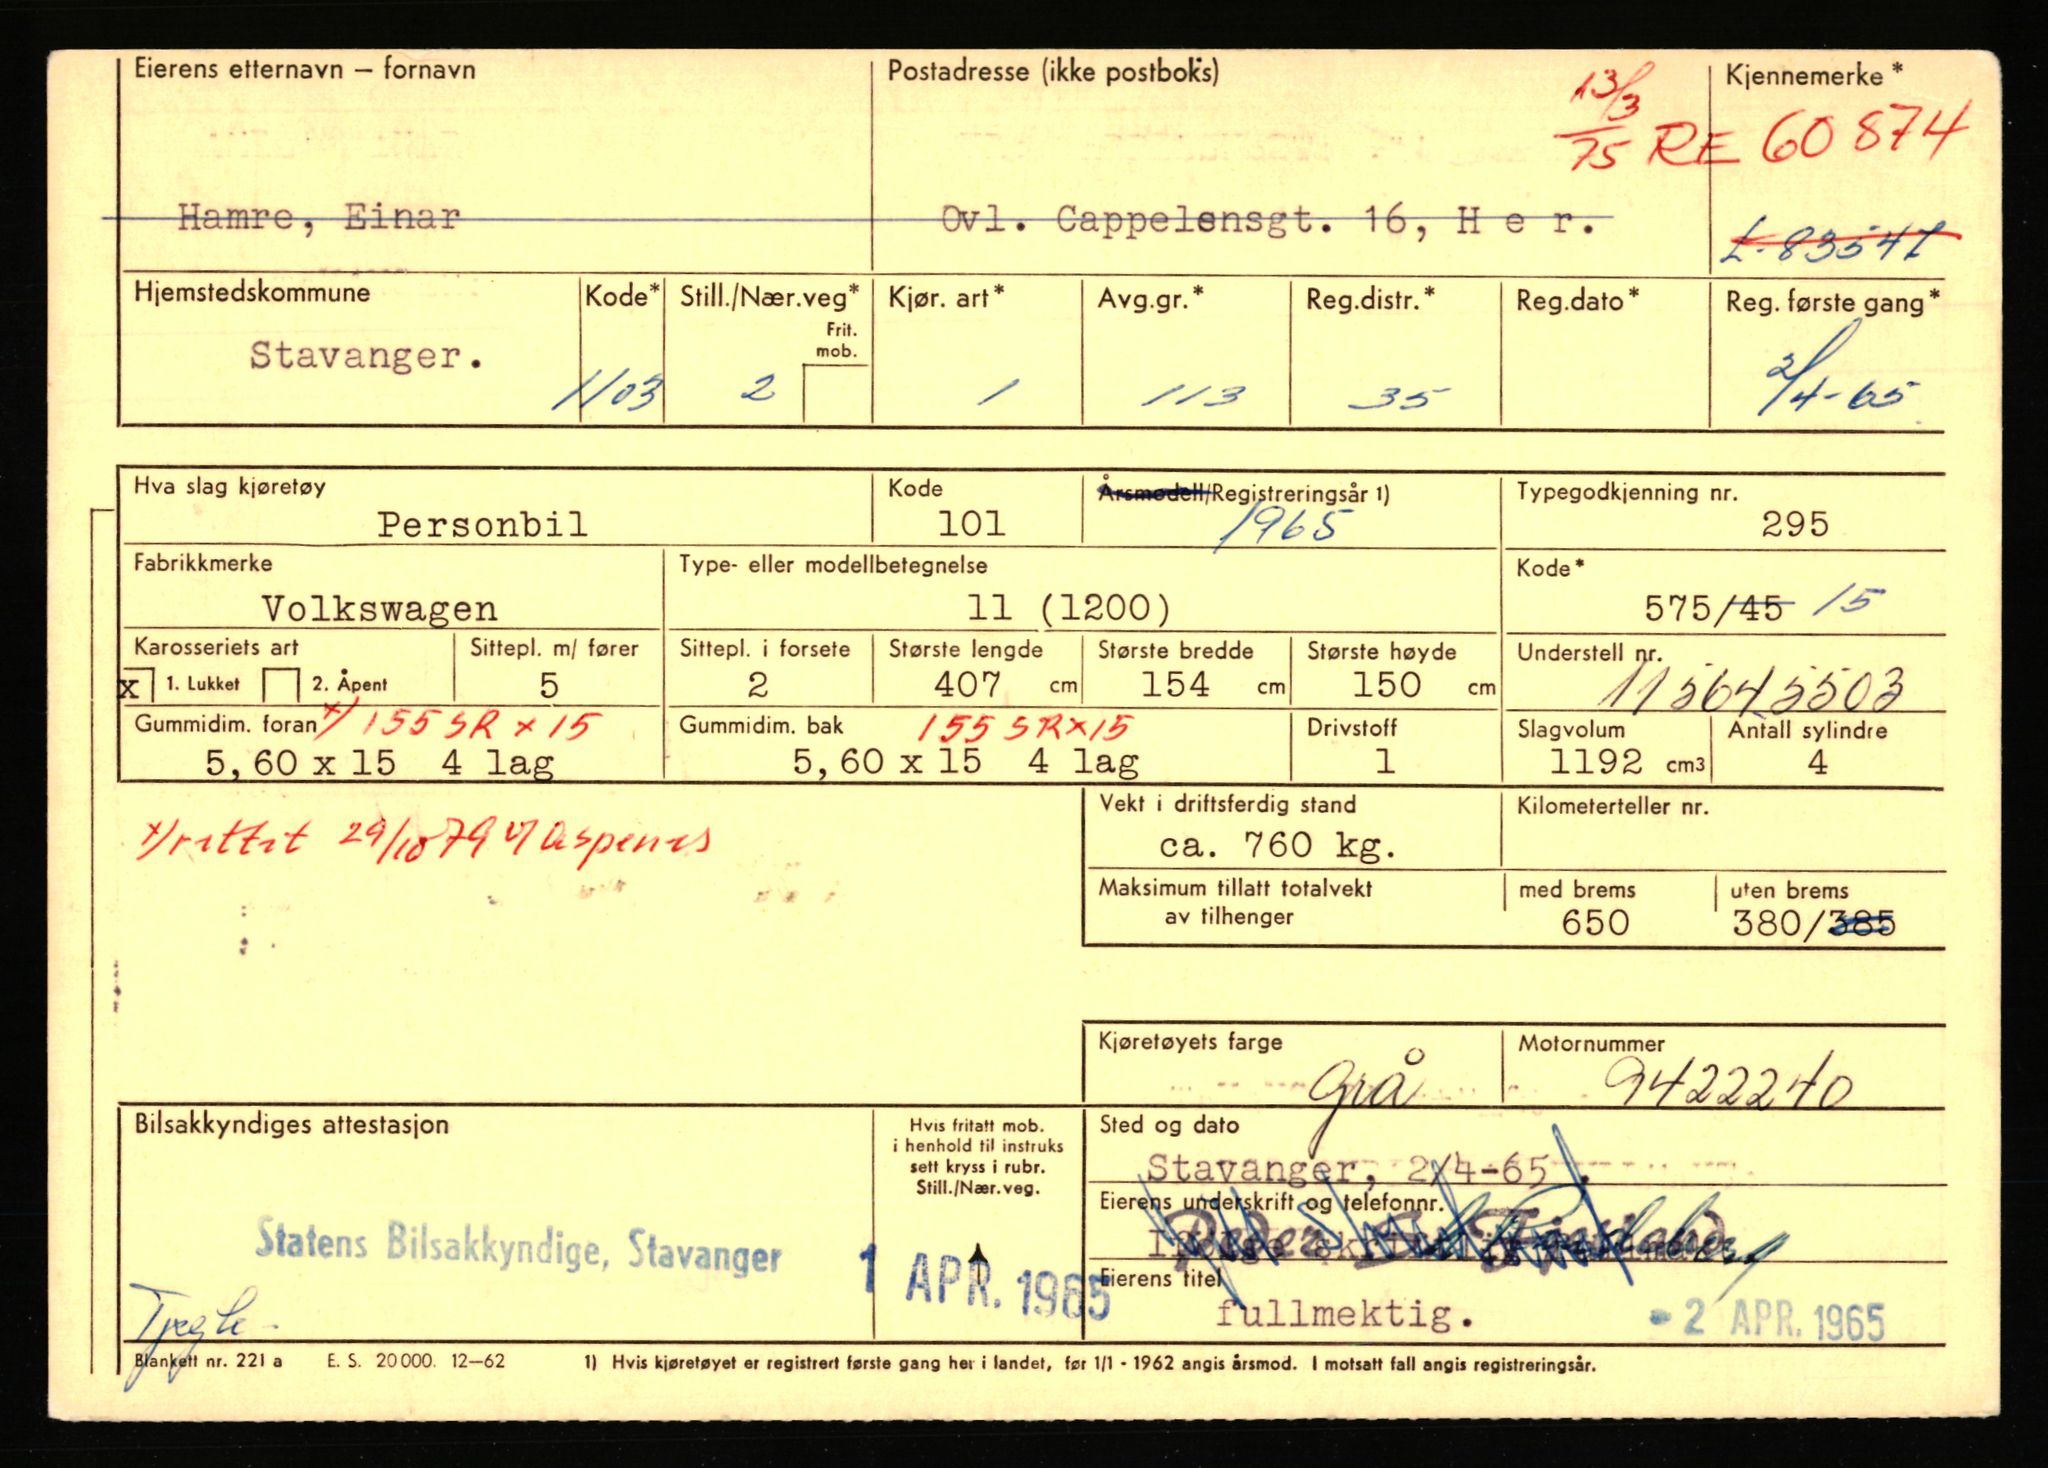 Eierens etternavn – fornavn Postadresse (ikke postboks) Kjennemerke*
13/3 75 RE 60874
Hamre, Einar Ovl. Cappelensgt. 16, H e r. L-83547
Hjemstedskommune Kode* Still./Nær.veg* Kjør. art* Avg.gr.* Reg.distr.* Reg.dato* Reg. første gang*
Frit. mob.
Stavanger. 1103 2 1 113 35 2/4-65
Hva slag kjøretøy Kode Årsmodell/Registreringsår 1) Typegodkjenning nr.
Personbil 101 1965 295
Fabrikkmerke Type- eller modellbetegnelse Kode*
Volkswagen 11 (1200) 575/45 15
Karosseriets art Sittepl. m/ fører Sittepl. i forsete Største lengde Største bredde Største høyde Understell nr.
x 1. Lukket 2. Åpent 5 2 407 cm 154 cm 150 cm 115645503
Gummidim. foran x) 155 SR x 15 Gummidim. bak 155 SR x 15 Drivstoff Slagvolum Antall sylindre
5,60 x 15 4 lag 5,60 x 15 4 lag 1 1192 cm3 4
Vekt i driftsferdig stand Kilometerteller nr.
x) rettet 29/10 79
ca. 760 kg.
Maksimum tillatt totalvekt av tilhenger med brems uten brems
650 380/385
Kjøretøyets farge Motornummer
Grå 9422240
Bilsakkyndiges attestasjon Hvis fritatt mob. i henhold til instruks sett kryss i rubr. Still./Nær.veg. Sted og dato
Stavanger, 2/4-65.
Eierens underskrift og telefonnr.
Statens Bilsakkyndige, Stavanger 1 APR. 1965
Eierens titel
fullmektig. - 2 APR. 1965
Blankett nr. 221 a E. S. 20 000. 12–62 1) Hvis kjøretøyet er registrert første gang her i landet, før 1/1 - 1962 angis årsmod. I motsatt fall angis registreringsår.